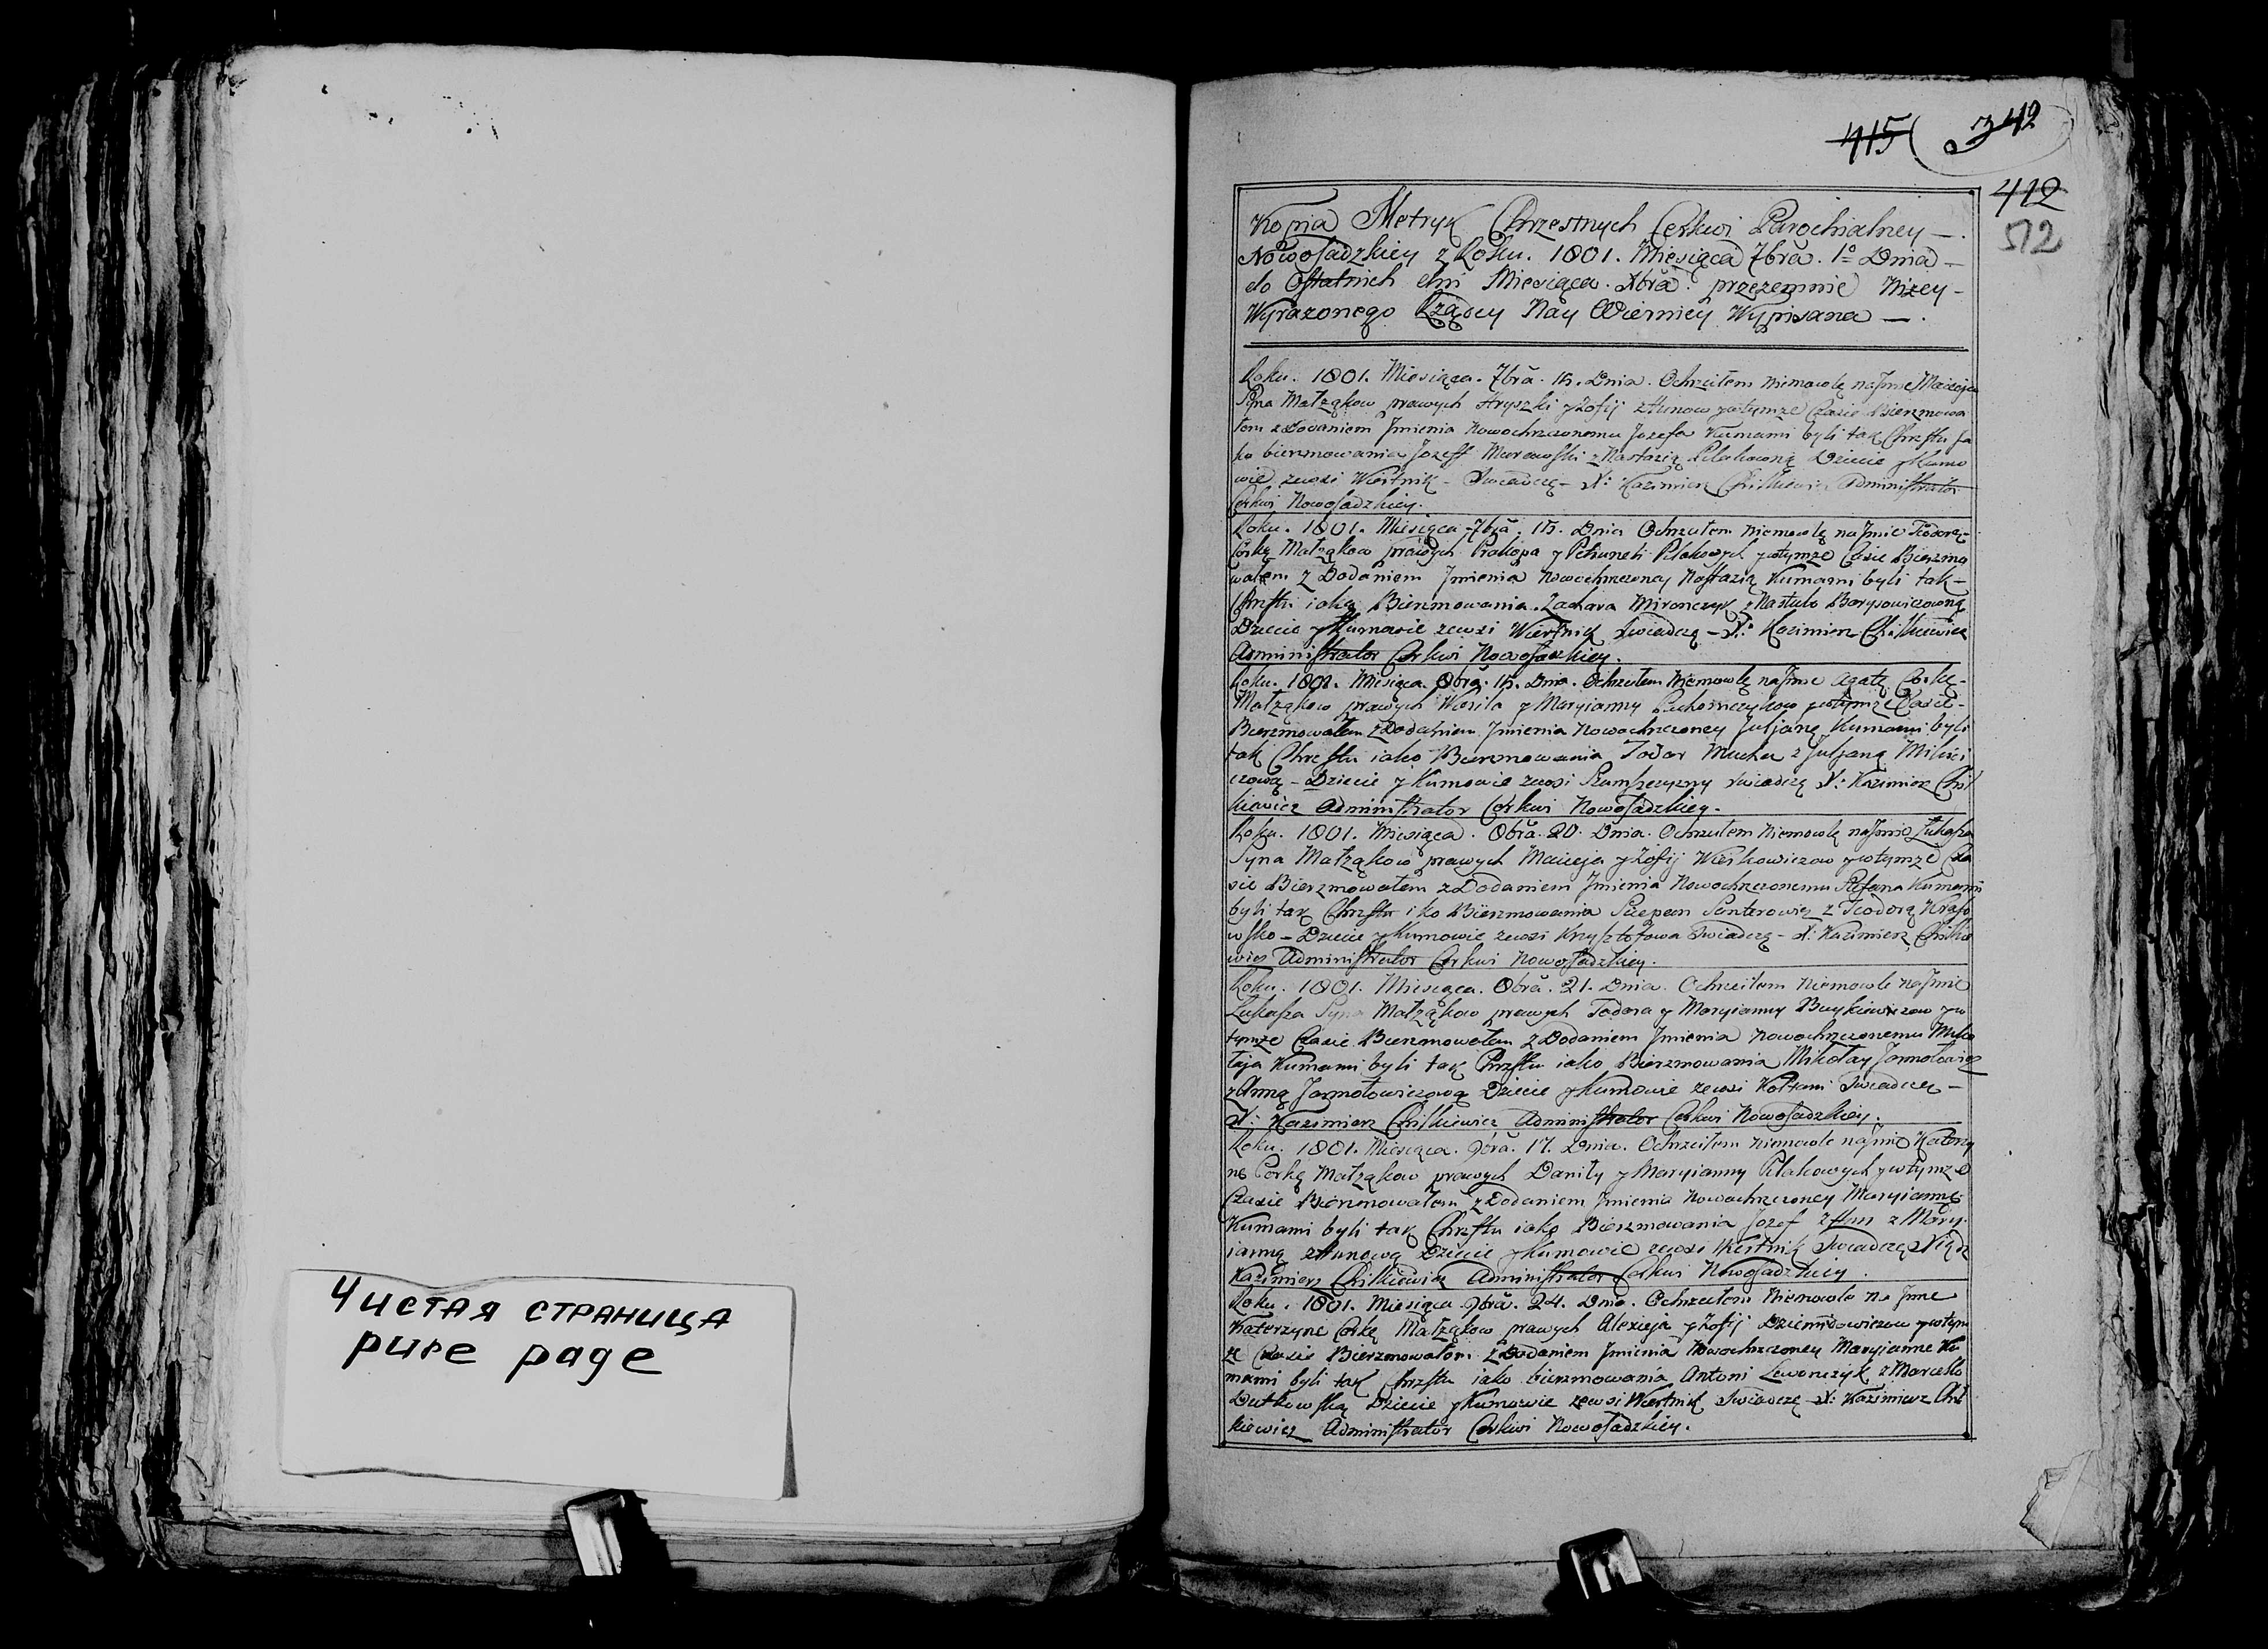 Чистая страница
pure page
415 342
412
512
Kopia Metryk Chrzestnych Cerkwi Parochialney
Nowosadzkiey z Roku. 1801. Miesiąca 7bra. 1o Dnia
do Ostatnich dni Miesiąca. Xbra. przezemnie Niżey
Wyrazonego Rządcy Nay Wierniey Wypisana
Roku. 1801. Miesiąca. 7bra. 15. Dnia. Ochrzciłem Niemowlę na Jmie Macieja
Syna Małząkow prawych Hryszki y Zofij ztunow y wtymze Czasie Bierzmowa
łem z Dodaniem Jmienia Nowochrzczonemu Jozefa Kumami byli tak Chrztu ja
ko bierzmowania Jozeff z Nastazią Dziecie y Kumo
wie zewsi Wiestnik - Swiadczę - X: Kazimierz Chilkiewicz Administrator
Cerkwi Nowosadzkiey.
Roku. 1801. Miesiąca 7bra. 15. Dnia Ochrzciłem Niemowlę na Jmie Todorę
Corkę Małząkow prawych Prakopa y Petruneli y wtymze Czasie Bierzmo
wałem z Dodaniem Jmienia Nowochrzczoney Nastazią Kumami byli tak
Chrztu iako Bierzmowania Zachara Mironczyk z Nastula Borysowiczowną
Dziecie y Kumowie zewsi Wiestnik Swiadczę - X: Kazimierz Chilkiewicz
Administrator Cerkwi Nowosadzkiey.
Roku. 1801. Miesiąca. 8bra. 15. Dnia. Ochrzciłem Niemowlę na Jmie Agatę Corkę
Małząkow prawych Wasila y Maryianny y wtymze Czasie
Bierzmowałem z Dodaniem Jmienia Nowochrzczoney Juljanę Kumami byli
tak Chrztu iako Bierzmowania Todor Mucha z Juljaną
czową - Dziecie y Kumowie zewsi Swiadczę X: Kazimierz Chil
kiewicz Administrator Cerkwi Nowosadzkiey.
Roku. 1801. Miesiąca. 8bra. 20. Dnia. Ochrzciłem Niemowlę na Jmie Łukasza
Syna Małząkow prawych Macieja y Zofij y wtymze Cza
sie Bierzmowałem z Dodaniem Jmienia Nowochrzczonemu Stefana Kumami
byli tak Chrztu iko Bierzmowania z Teodorą
Dziecie y Kumowie zewsi Krysztofowa Swiadczę - X: Kazimierz Chilkie
wicz Administrator Cerkwi Nowosadzkiey.
Roku. 1801. Miesiąca. 8bra. 21. Dnia. Ochrzciłem Niemowle na Jmie
Łukasza Syna Małząkow prawych Todora y Maryianny y w
tymze Czasie Bierzmowałem z Dodaniem Jmienia Nowochrzczonemu Miko
łaja Kumami byli tak Chrztu iako Bierzmowania Mikołay Jarmołowicz
z Anną Jarmołowiczową Dziecie y Kumowie zewsi Kołtani Swiadczę -
X: Kazimierz Chilkiewicz Administrator Cerkwi Nowosadzkiey.
Roku. 1801. Miesiąca. 9bra. 17. Dnia. Ochrzciłem Niemowle na Jmie Katerzy
ne Corkę Małząkow prawych Daniły y Maryianny y wtymze
Czasie Bierzmowałem z Dodaniem Jmienia Nowochrzczoney Maryiannę
Kumami byli tak Chrztu iako Bierzmowania Jozef ztun z Mary
ianną ztunową Dziecie y Kumowie zewsi Wiestnik Swiadczę Xiądz
Kazimierz Chilkiewicz Administrator Cerkwi Nowosadzkiey.
Roku. 1801. Miesiąca 9bra. 24. Dnia. Ochrzciłem Niemowle na Jmie
Katerzyne Corkę Małząkow prawych Alexieja y Zofij y wtym
ze Czasie Bierzmowałem z Dodaniem Jmienia Nowochrzczoney Maryianne Ku
mami byli tak Chrztu iako bierzmowania Antoni Lewonczyk z Marcellą
Dutkowską Dziecie y Kumowie zewsi Wiestnik Swiadczę X: Kazimierz Chil
kiewicz Administrator Cerkwi Nowosadzkiey.